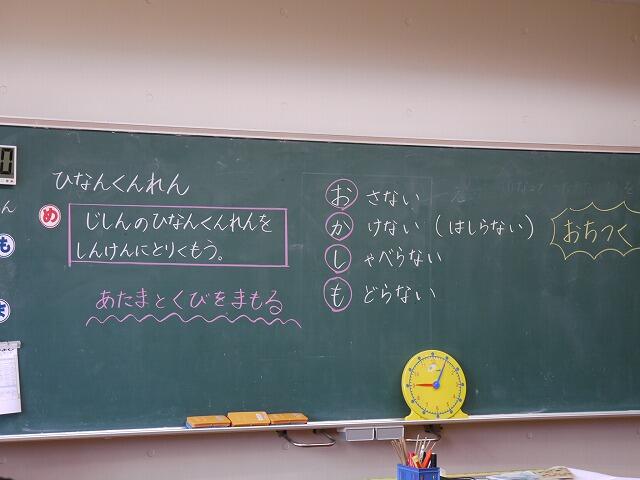 ひなんくんれん
め
じしんのひなんくんれんを
しんけんにとりくもう。
あたまとくびをまもる
おさない
かけない（はしらない）
しゃべらない
もどらない
おちつく
も
ま
ん
0